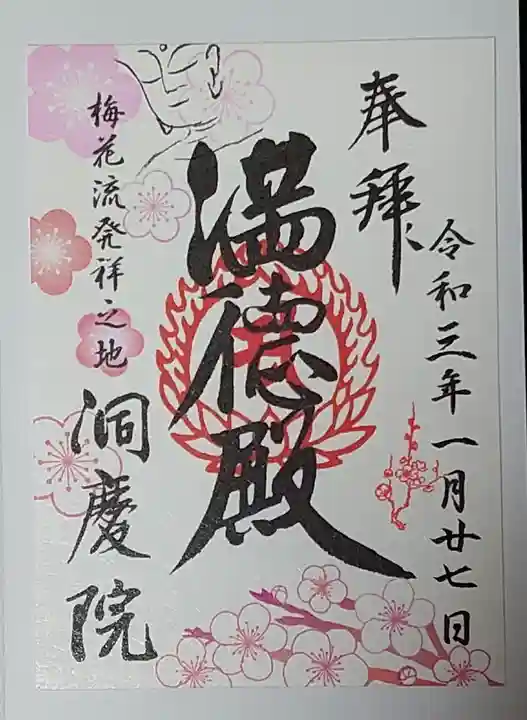 奉拜
令和三年一月廿七日
満徳殿
梅花流発祥之地
洞慶院